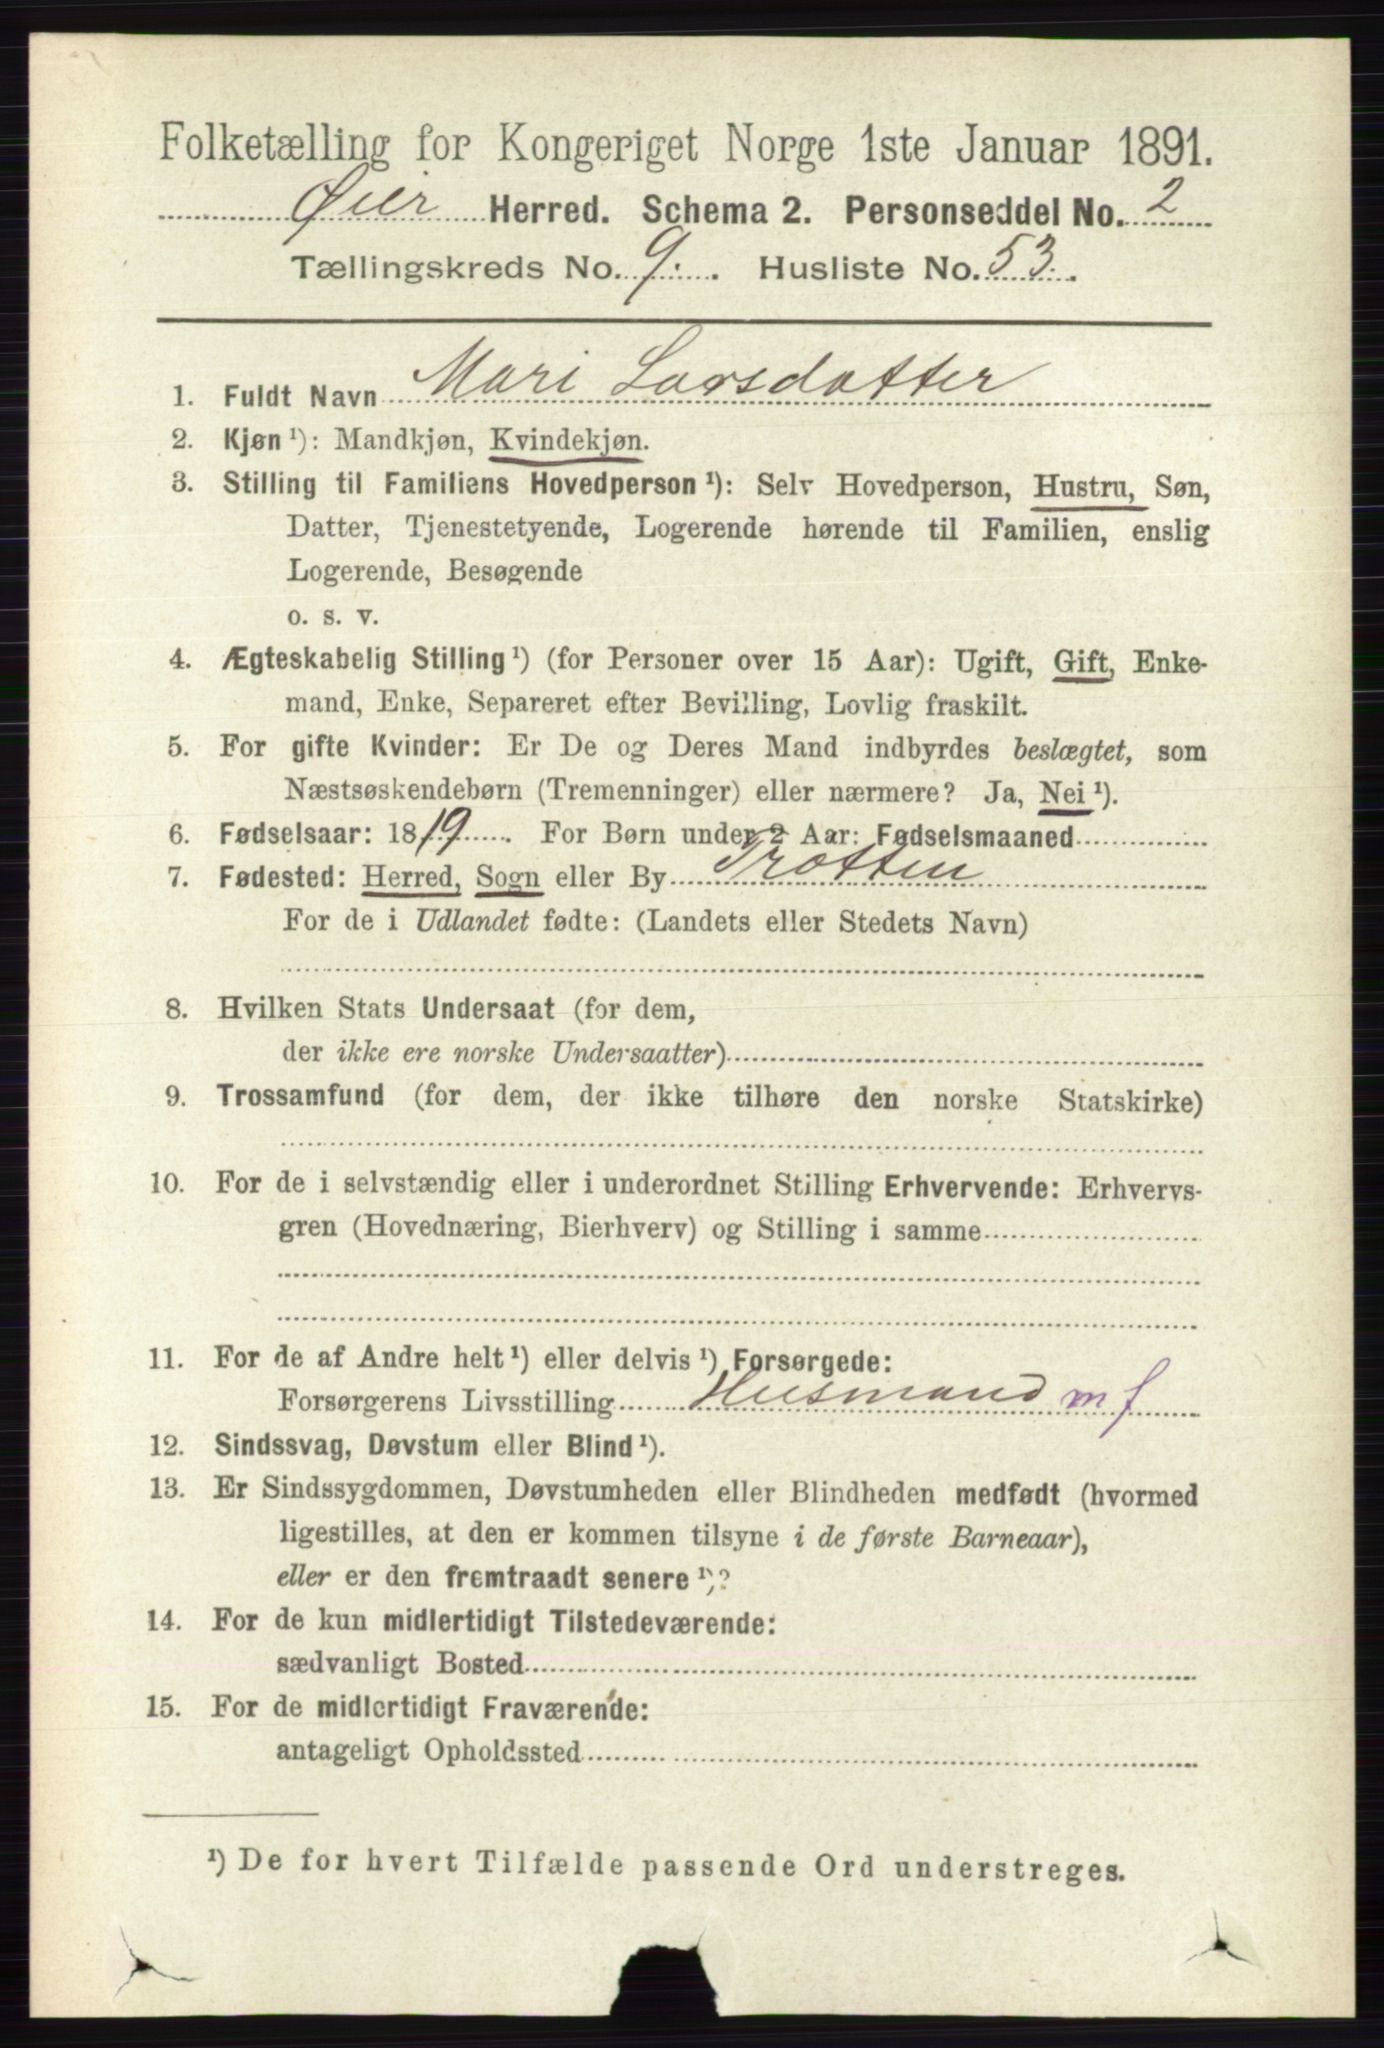 Folketælling for Kongeriget Norge 1ste Januar 1891.
Øier Herred. Schema 2. Personseddel No. 2
Tællingskreds No. 9. Husliste No. 53.
1. Fuldt Navn Mari Larsdatter
2. Kjøn ¹): Mandkjøn, Kvindekjøn.
3. Stilling til Familiens Hovedperson ¹): Selv Hovedperson, Hustru, Søn,
Datter, Tjenestetyende, Logerende hørende til Familien, enslig
Logerende, Besøgende
o. s. v.
4. Ægteskabelig Stilling ¹) (for Personer over 15 Aar): Ugift, Gift, Enke-
mand, Enke, Separeret efter Bevilling, Lovlig fraskilt.
5. For gifte Kvinder: Er De og Deres Mand indbyrdes beslægtet, som
Næstsøskendebørn (Tremenninger) eller nærmere? Ja, Nei ¹).
6. Fødselsaar: 1819. For Børn under 2 Aar: Fødselsmaaned
7. Fødested: Herred, Sogn eller By Trotten
For de i Udlandet fødte: (Landets eller Stedets Navn)
8. Hvilken Stats Undersaat (for dem,
der ikke ere norske Undersaatter)
9. Trossamfund (for dem, der ikke tilhøre den norske Statskirke)
10. For de i selvstændig eller i underordnet Stilling Erhvervende: Erhvervs-
gren (Hovednæring, Bierhverv) og Stilling i samme
11. For de af Andre helt ¹) eller delvis ¹) Forsørgede:
Forsørgerens Livsstilling Husmand m f
12. Sindssvag, Døvstum eller Blind ¹).
13. Er Sindssygdommen, Døvstumheden eller Blindheden medfødt (hvormed
ligestilles, at den er kommen tilsyne i de første Barneaar),
eller er den fremtraadt senere ¹)?
14. For de kun midlertidigt Tilstedeværende:
sædvanligt Bosted
15. For de midlertidigt Fraværende:
antageligt Opholdssted
¹) De for hvert Tilfælde passende Ord understreges.